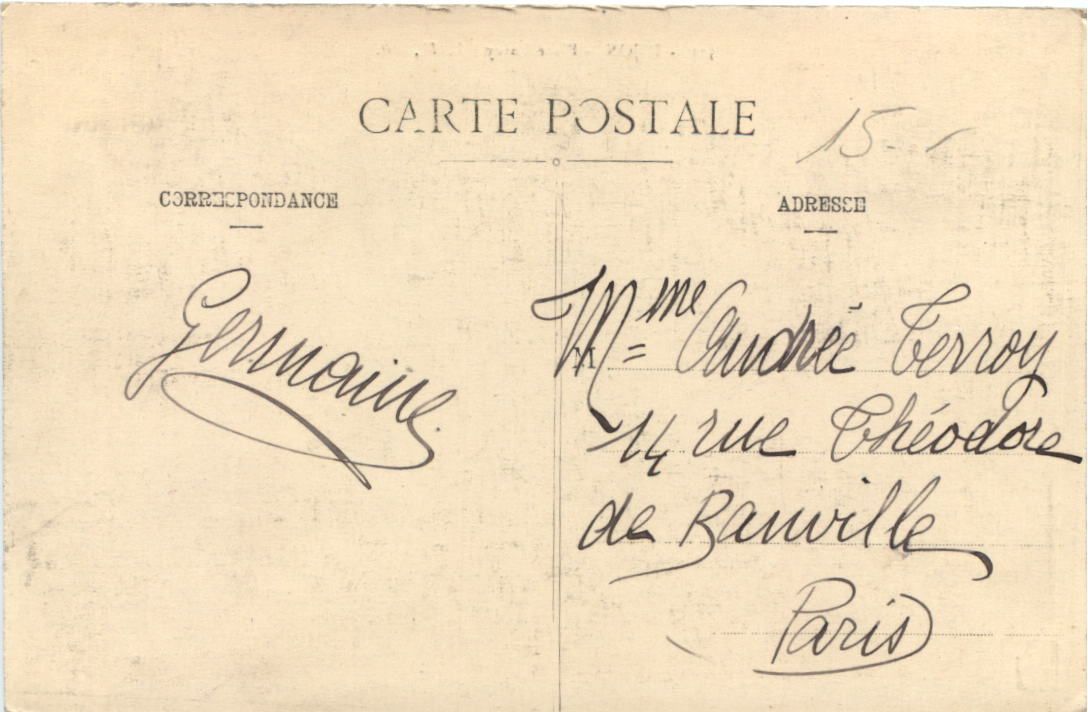 CARTE POSTALE
15-
CORRESPONDANCE
ADRESSE
Germaine
Mme Andrée Terroy
14 rue Théodore
de Banville
Paris